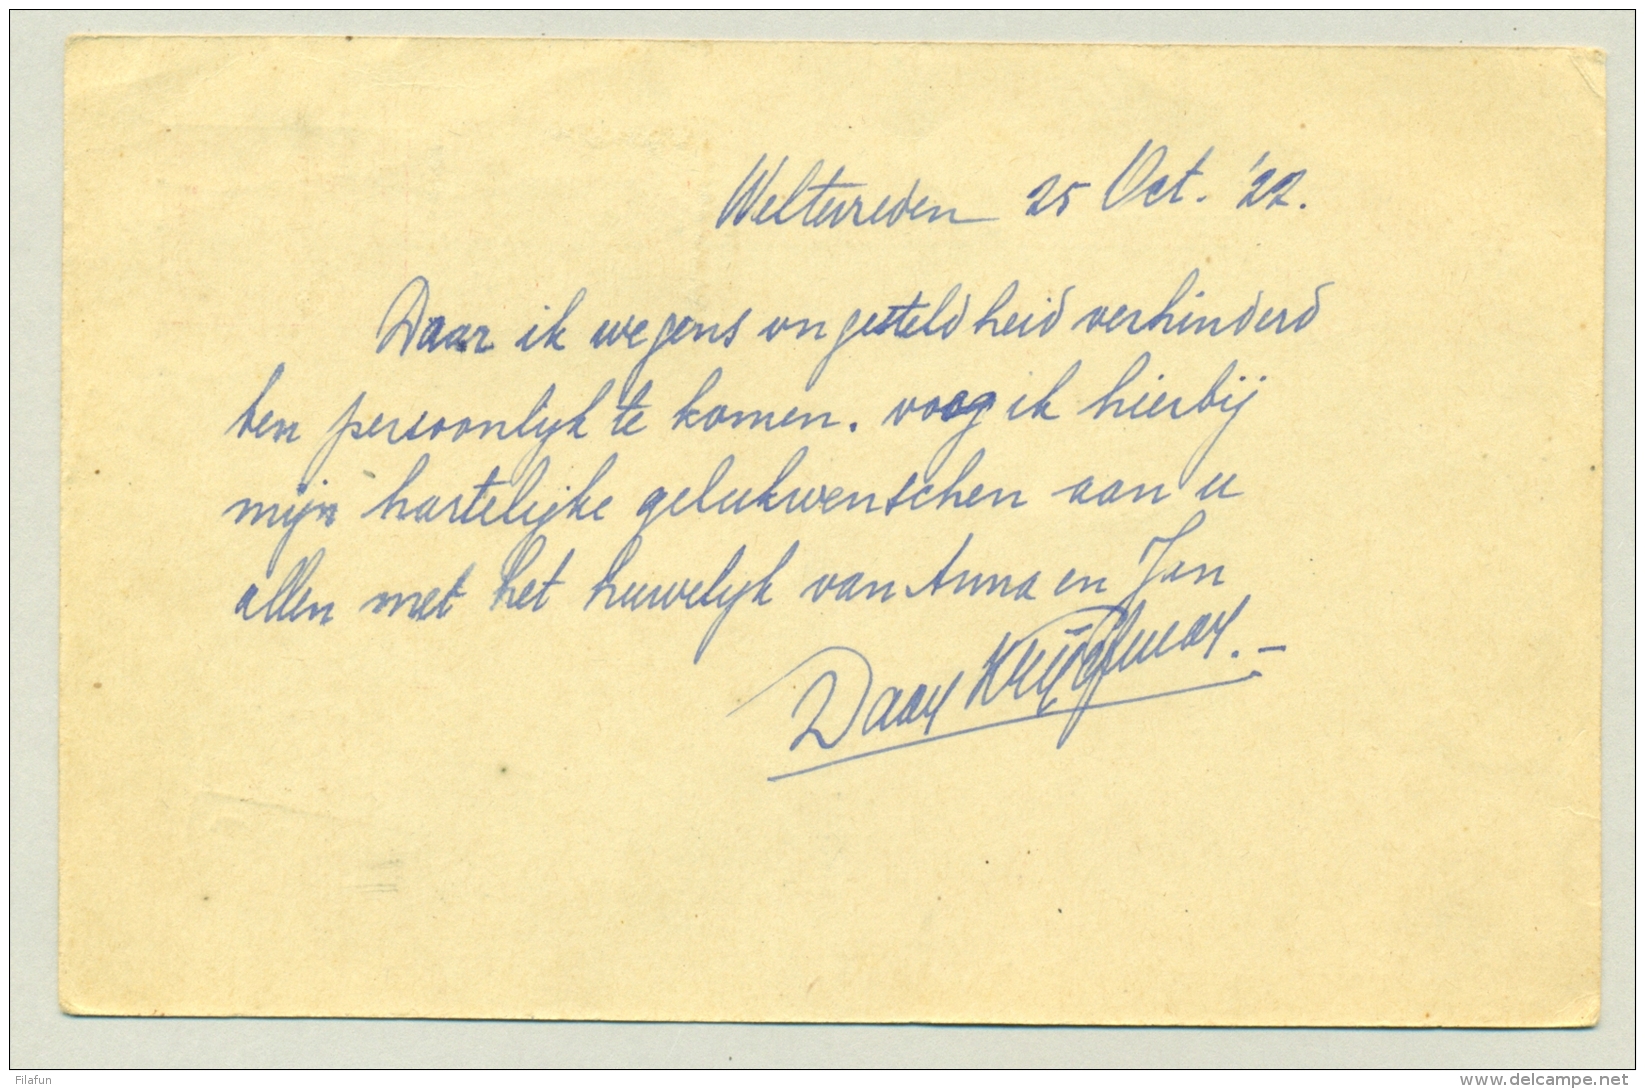 Weltevreden 25 Oct. '22.
Daar ik wegens ongesteldheid verhinderd
ben persoonlijk te komen. voeg ik hierbij
mijn hartelijke gelukwenschen aan u
allen met het huwelijk van Anna en Jan
Daan
Filafun
www.delcampe.net